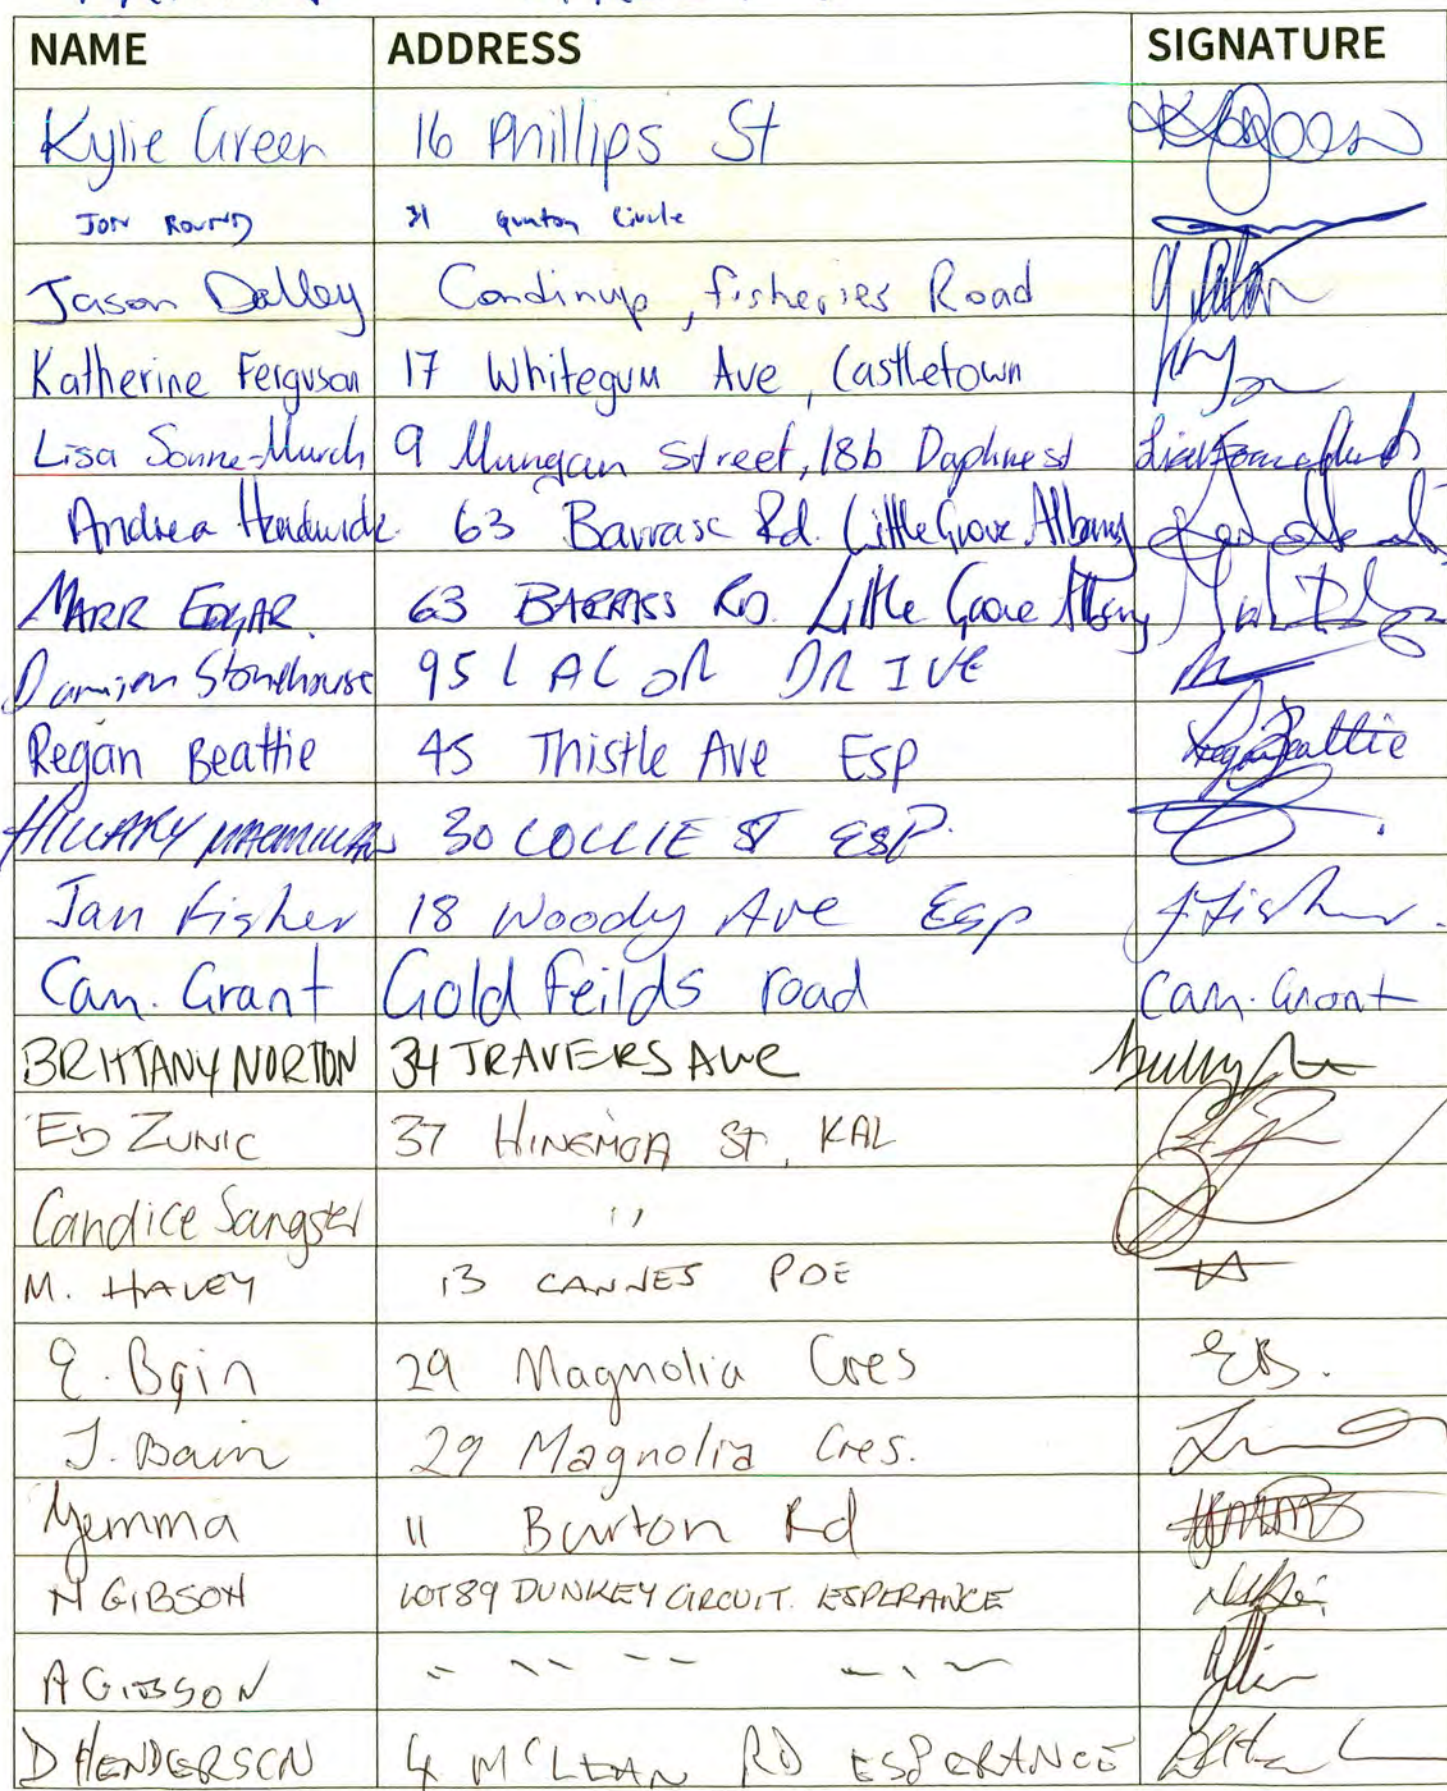 NAME ADDRESS SIGNATURE
Kylie Green 16 Phillips St
JON ROUND 31 Gunton Circle
Jason Dalley Condinup, fisheries Road
Katherine Ferguson 17 Whitegum Ave, Castletown
Lisa Sonne-Murch 9 Mungan Street, 18b Daphne st
Andrea Hardwick 63 Barrass Rd. Little Grove Albany
MARK EDGAR. 63 BARRASS RD. Little Grove Albany
Damien Stonehouse 95 LALOR DRIVE
Regan Beattie 45 Thistle Ave Esp Regan Beattie
HILLARY MACMILLAN 30 COLLIE ST ESP.
Jan Fisher 18 Woody Ave Esp J Fisher.
Cam. Grant Gold Feilds road Cam. Grant
BRITTANY NORTON 34 TRAVERS AVE
ED ZUNIC 37 HINEMOA ST, KAL
Candice Sangster "
M. HAVEY 13 CANNES PDE
E. Bain 29 Magnolia Cres EB.
J. Bain 29 Magnolia Cres.
Yemma 11 Burton Rd
N GIBSON LOT 89 DUNKEY CIRCUIT. ESPERANCE
A GIBSON
D HENDERSON 4 McLEAN RD ESPERANCE